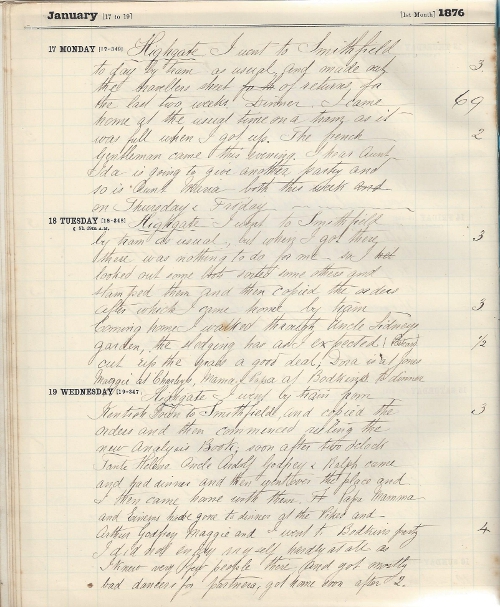 January [17 to 19] [1st Month] 1876
17 MONDAY [17-349] Highgate I went to Smithfield
to day by tram as usual and made out 3
the travellers sheet of returns for
the last two weeks' Dinner. I came 69
home at the usual time on a tram, as it
was full when I got up. The french 2
Gentleman came this evening. Aunt
Ida is going to give another party and
so is Aunt both this week
on Thursday & Friday
18 TUESDAY [18-348] Highgate I went to Smithfield
by tram as usual, but when I got there 3
there was nothing to do for me so I
looked out some sorted some others and
stamped them and then copied the orders
after which I came home by tram 3
Coming home I walked through Uncle Sidneys
garden, the sledging has as I expected 1/2
cut up the grass a good deal, Dora is at Jones
Maggie at Mama, Papa at Bodkins to dinner
19 WEDNESDAY [19-347 Highgate I went by train from
Kentish Town to Smithfield, and copied the 3
orders and then commenced ruling the
new Analysis Book; soon after two oclock
Tante Helene Uncle Adolf Godfrey & Ralph came
and had dinner and then went over the place and
I then came home with them. Papa Mamma
and have gone to dinner at the and
Arthur Godfrey Maggie and I went to Bodkins party 4
I did not enjoy myself hardly at all as
I knew very few people there and got mostly
bad dancers for partners, got home soon after 2.